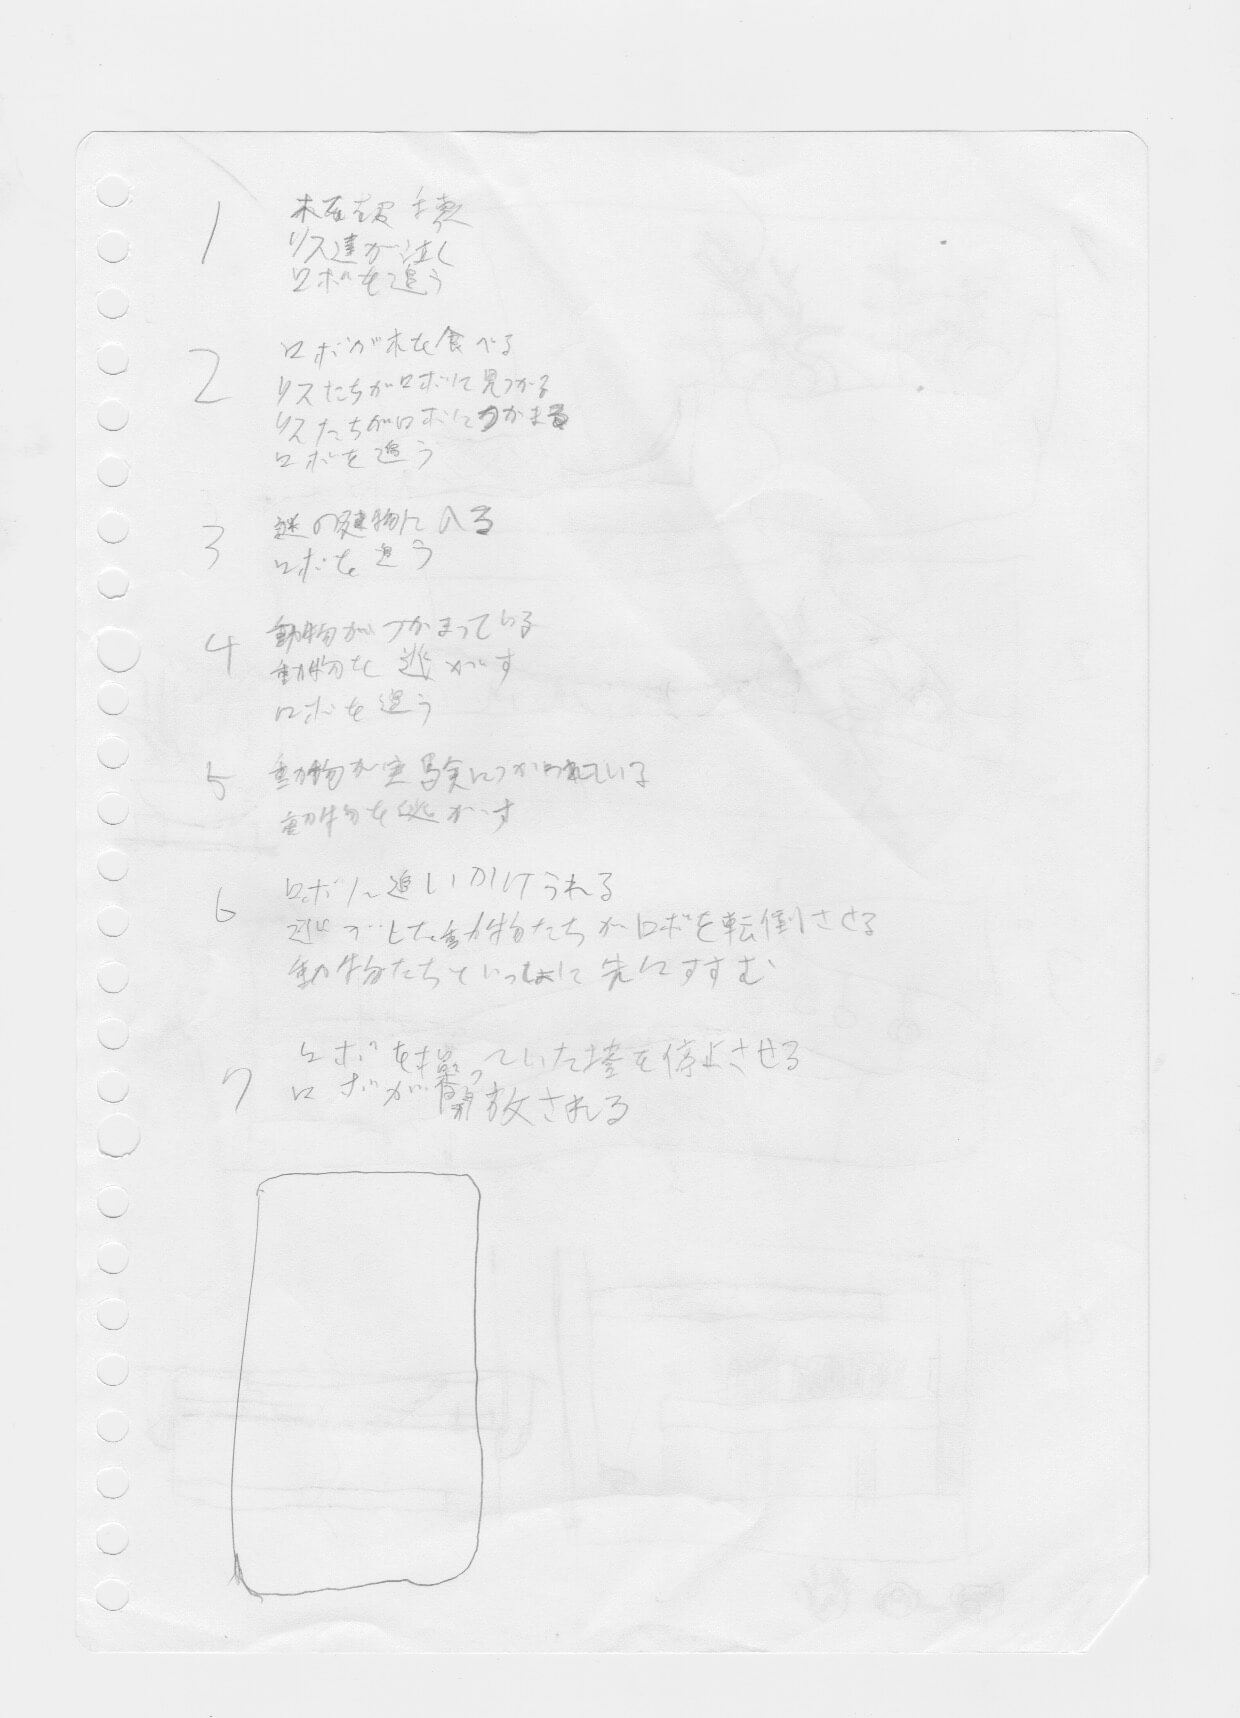 1
木を破壊
リス達が泣く
ロボを追う
2
ロボが木を食べる
リスたちがロボに見つかる
リスたちがロボにつかまる
ロボを追う
3
謎の建物に入る
ロボを追う
4
動物がつかまっている
動物を逃がす
ロボを追う
5
動物が実験につかわれている
動物を逃がす
6
ロボに追いかけられる
逃がした動物たちがロボを転倒させる
動物たちといっしょに先にすすむ
7
ロボを操っていた塔を停止させる
ロボが解放される